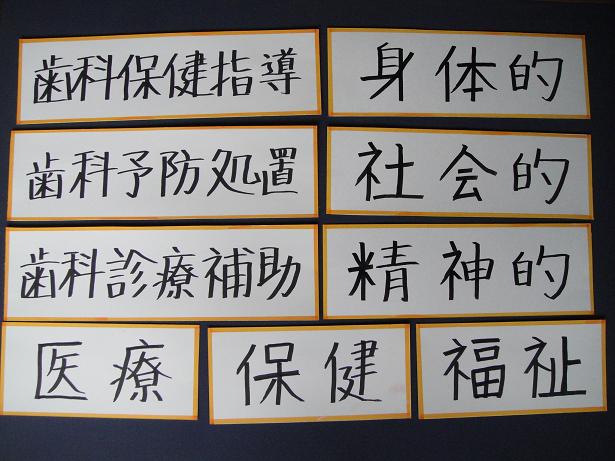 歯科保健指導 身体的
歯科予防処置 社会的
歯科診療補助 精神的
医療 保健 福祉